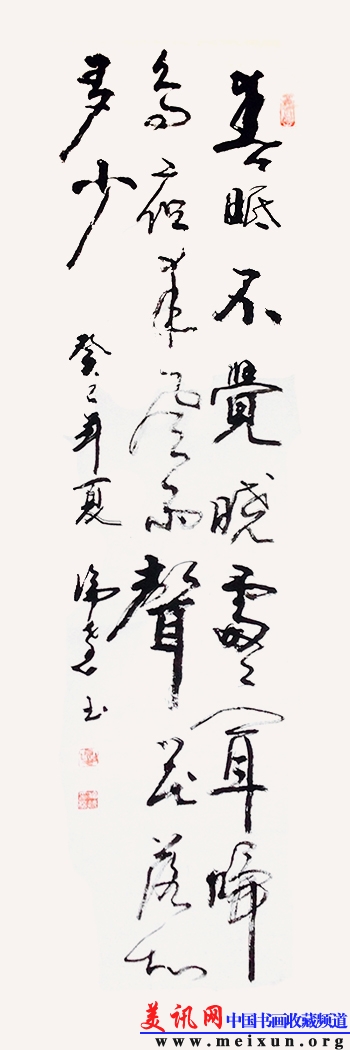 春眠不覺曉處々聞啼
鳥夜來風雨聲花落知
多少
癸巳年夏 书
美讯网 中国书画收藏频道
www.meixun.org